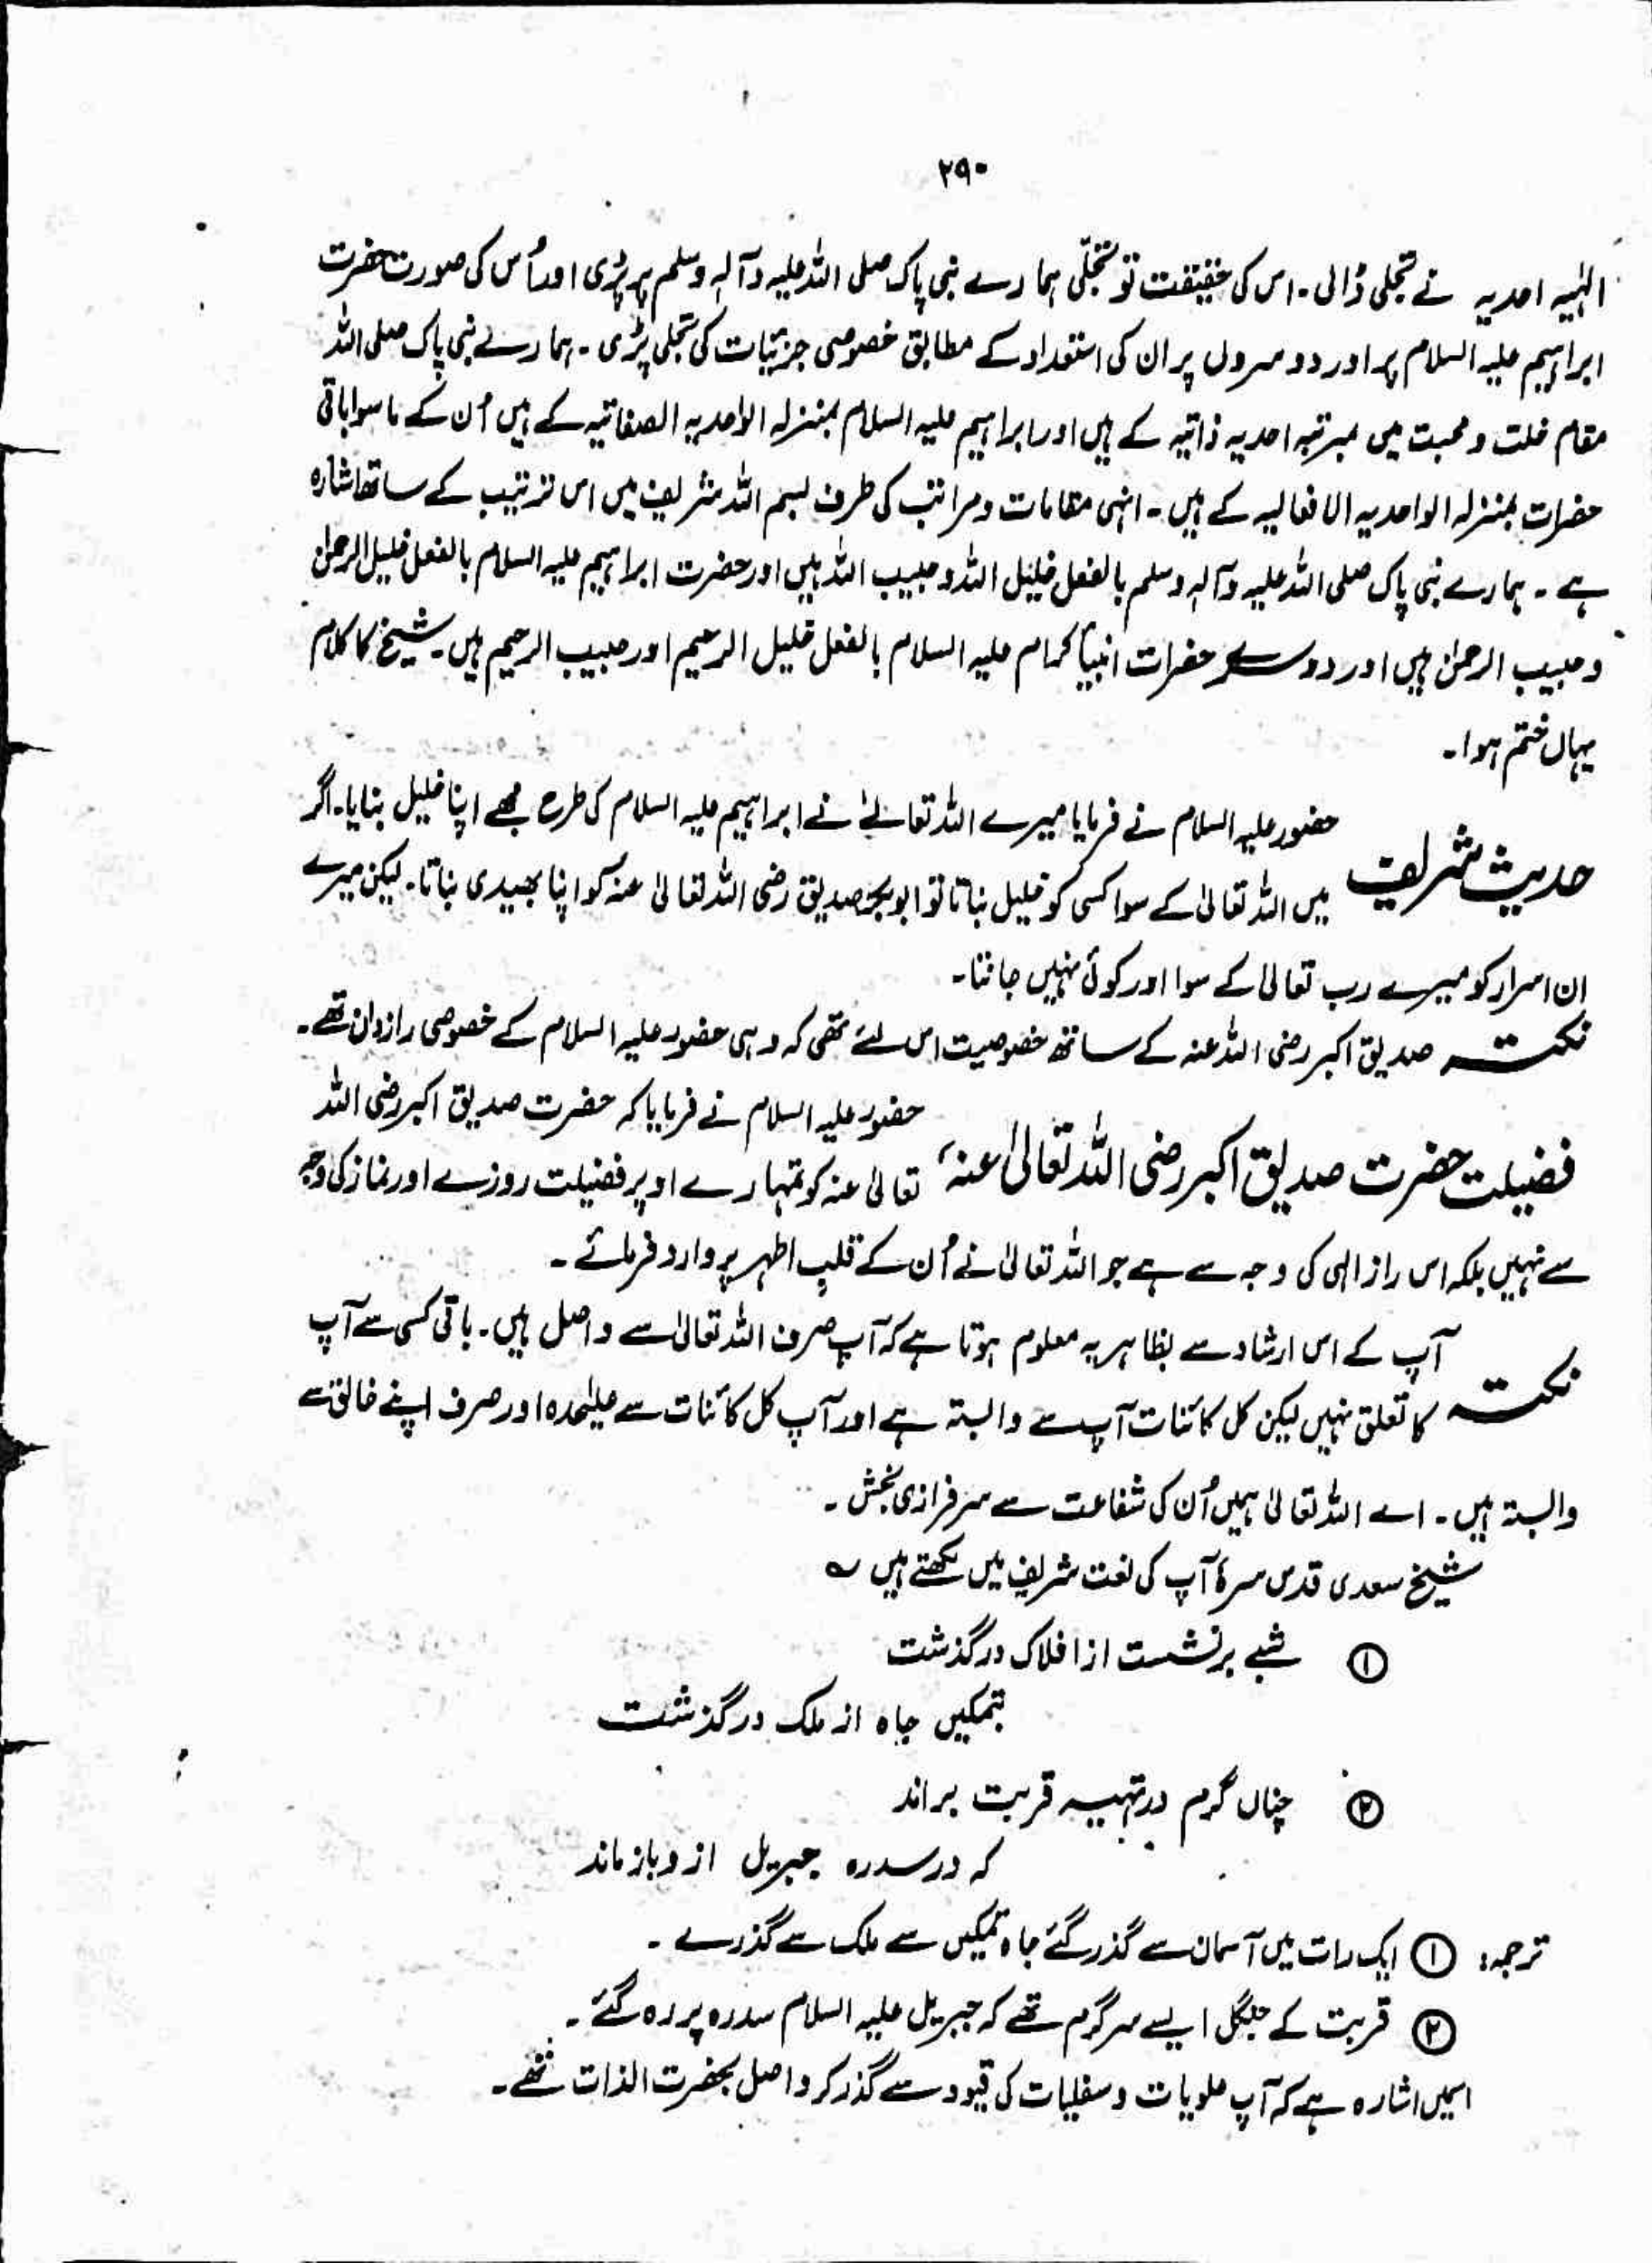 ۲۹۰
الٰہیہ احدیہ نے تجلی ڈالی۔ اس کی حقیقت تو تجلّی ہمارے نبی پاک صلی اللہ علیہ وآلہٖ وسلم پر پڑی اور اُس کی صورت حضرت
ابراہیم علیہ السلام پر اور دوسروں پر ان کی استعداد کے مطابق خصوصی جزئیات کی تجلی پڑی۔ ہمارے نبی پاک صلی اللہ
مقام خلت و محبت میں بمرتبہ احدیہ ذاتیہ کے ہیں اور ابراہیم علیہ السلام بمنزلہ الواحدیہ الصفاتیہ کے ہیں اُن کے ماسوا باقی
حضرات بمنزلہ الواحدیہ الافعالیہ کے ہیں۔ انہی مقامات و مراتب کی طرف بسم اللہ شریف میں اس ترتیب کے ساتھ اشارہ
ہے۔ ہمارے نبی پاک صلی اللہ علیہ وآلہٖ وسلم بالفعل خلیل اللہ و حبیب اللہ ہیں اور حضرت ابراہیم علیہ السلام بالفعل خلیل الرحمٰن
و حبیب الرحمٰن ہیں اور دوسرے حضرات انبیاً کمام علیہ السلام بالفعل خلیل الرحیم اور حبیب الرحیم ہیں۔ شیخ کا کلام
یہاں ختم ہوا۔
حدیث شریف حضور علیہ السلام نے فرمایا میرے اللہ تعالےٰ نے ابراہیم علیہ السلام کی طرح مجھے اپنا خلیل بنایا۔ اگر
میں اللہ تعالیٰ کے سوا کسی کو خلیل بناتا تو ابوبکر صدیق رضی اللہ تعالیٰ عنہ کو اپنا بھیدی بناتا۔ لیکن میرے
ان اسرار کو میرے رب تعالیٰ کے سوا اور کوئی نہیں جانتا۔
نکتہ صدیق اکبر رضی اللہ عنہ کے ساتھ خصوصیت اس لئے تھی کہ وہی حضور علیہ السلام کے خصوصی رازدان تھے۔
فضیلت حضرت صدیق اکبر رضی اللہ تعالیٰ عنہ، حضور علیہ السلام نے فرمایا کہ حضرت صدیق اکبر رضی اللہ
تعالیٰ عنہ کو تمہارے اوپر فضیلت روزے اور نماز کی وجہ
سے نہیں بلکہ اس راز الہی کی وجہ سے ہے جو اللہ تعالیٰ نے اُن کے قلبِ اطہر پر وارد فرمائے۔
نکتہ آپ کے اس ارشاد سے بظاہر یہ معلوم ہوتا ہے کہ آپ صرف اللہ تعالیٰ سے واصل ہیں۔ باقی کسی سے آپ
کا تعلق نہیں لیکن کل کائنات آپ سے وابستہ ہے اور آپ کل کائنات سے علیٰحدہ اور صرف اپنے خالق سے
وابستہ ہیں۔ اے اللہ تعالیٰ ہمیں اُن کی شفاعت سے سرفرازی بخش۔
شیخ سعدی قدس سرہٗ آپ کی نعت شریف میں لکھتے ہیں ؎
① شبے برنشست از افلاک درگذشت
بتمکیں جاہ از ملک درگذشت
② چناں گرم در تہیہ قربت براند
کہ در سدرہ جبریل ازو باز ماند
ترجمہ: ① ایک رات میں آسمان سے گذر گئے جاہ تمکیں سے ملک سے گذرے۔
② قربت کے جنگل ایسے سرگرم تھے کہ جبریل علیہ السلام سدرہ پر رہ گئے۔
اسمیں اشارہ ہے کہ آپ علویات و سفلیات کی قیود سے گذر کر واصل بحضرت الذات تھے۔